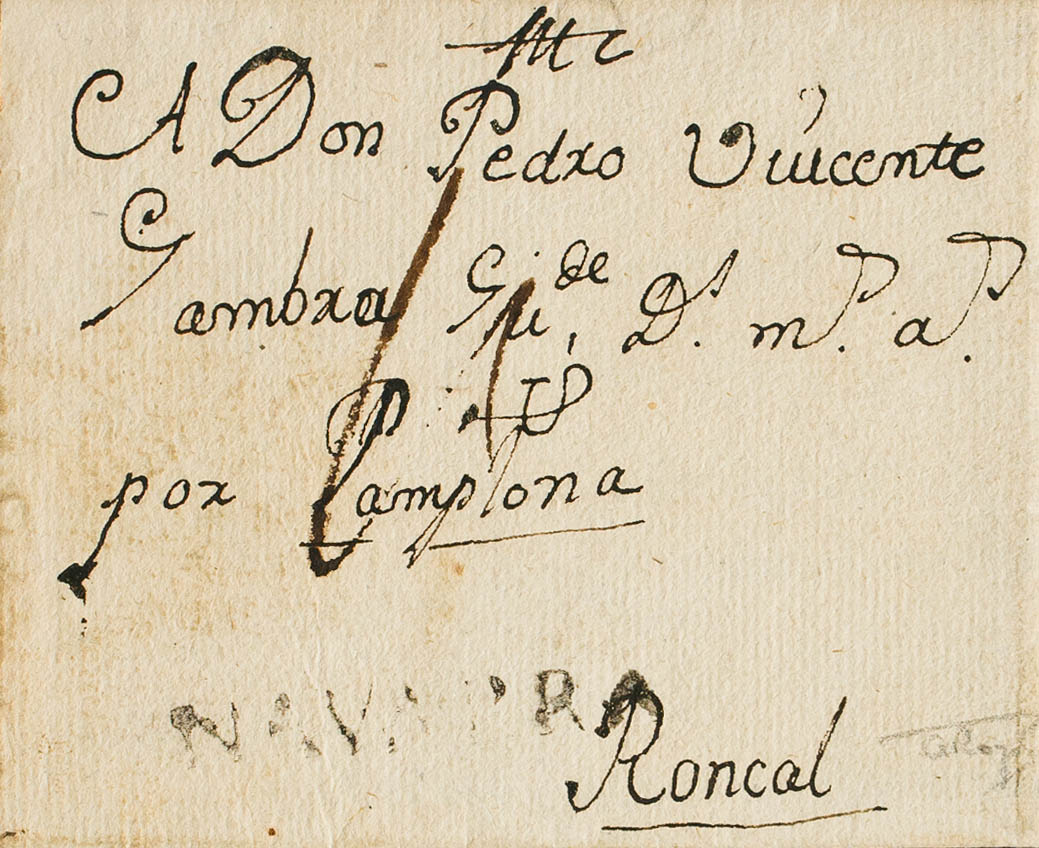 A Don Pedro Viucente
Gambra Gu.de D.s m.P a.P
por Pamplona
NAVARRA
Roncal